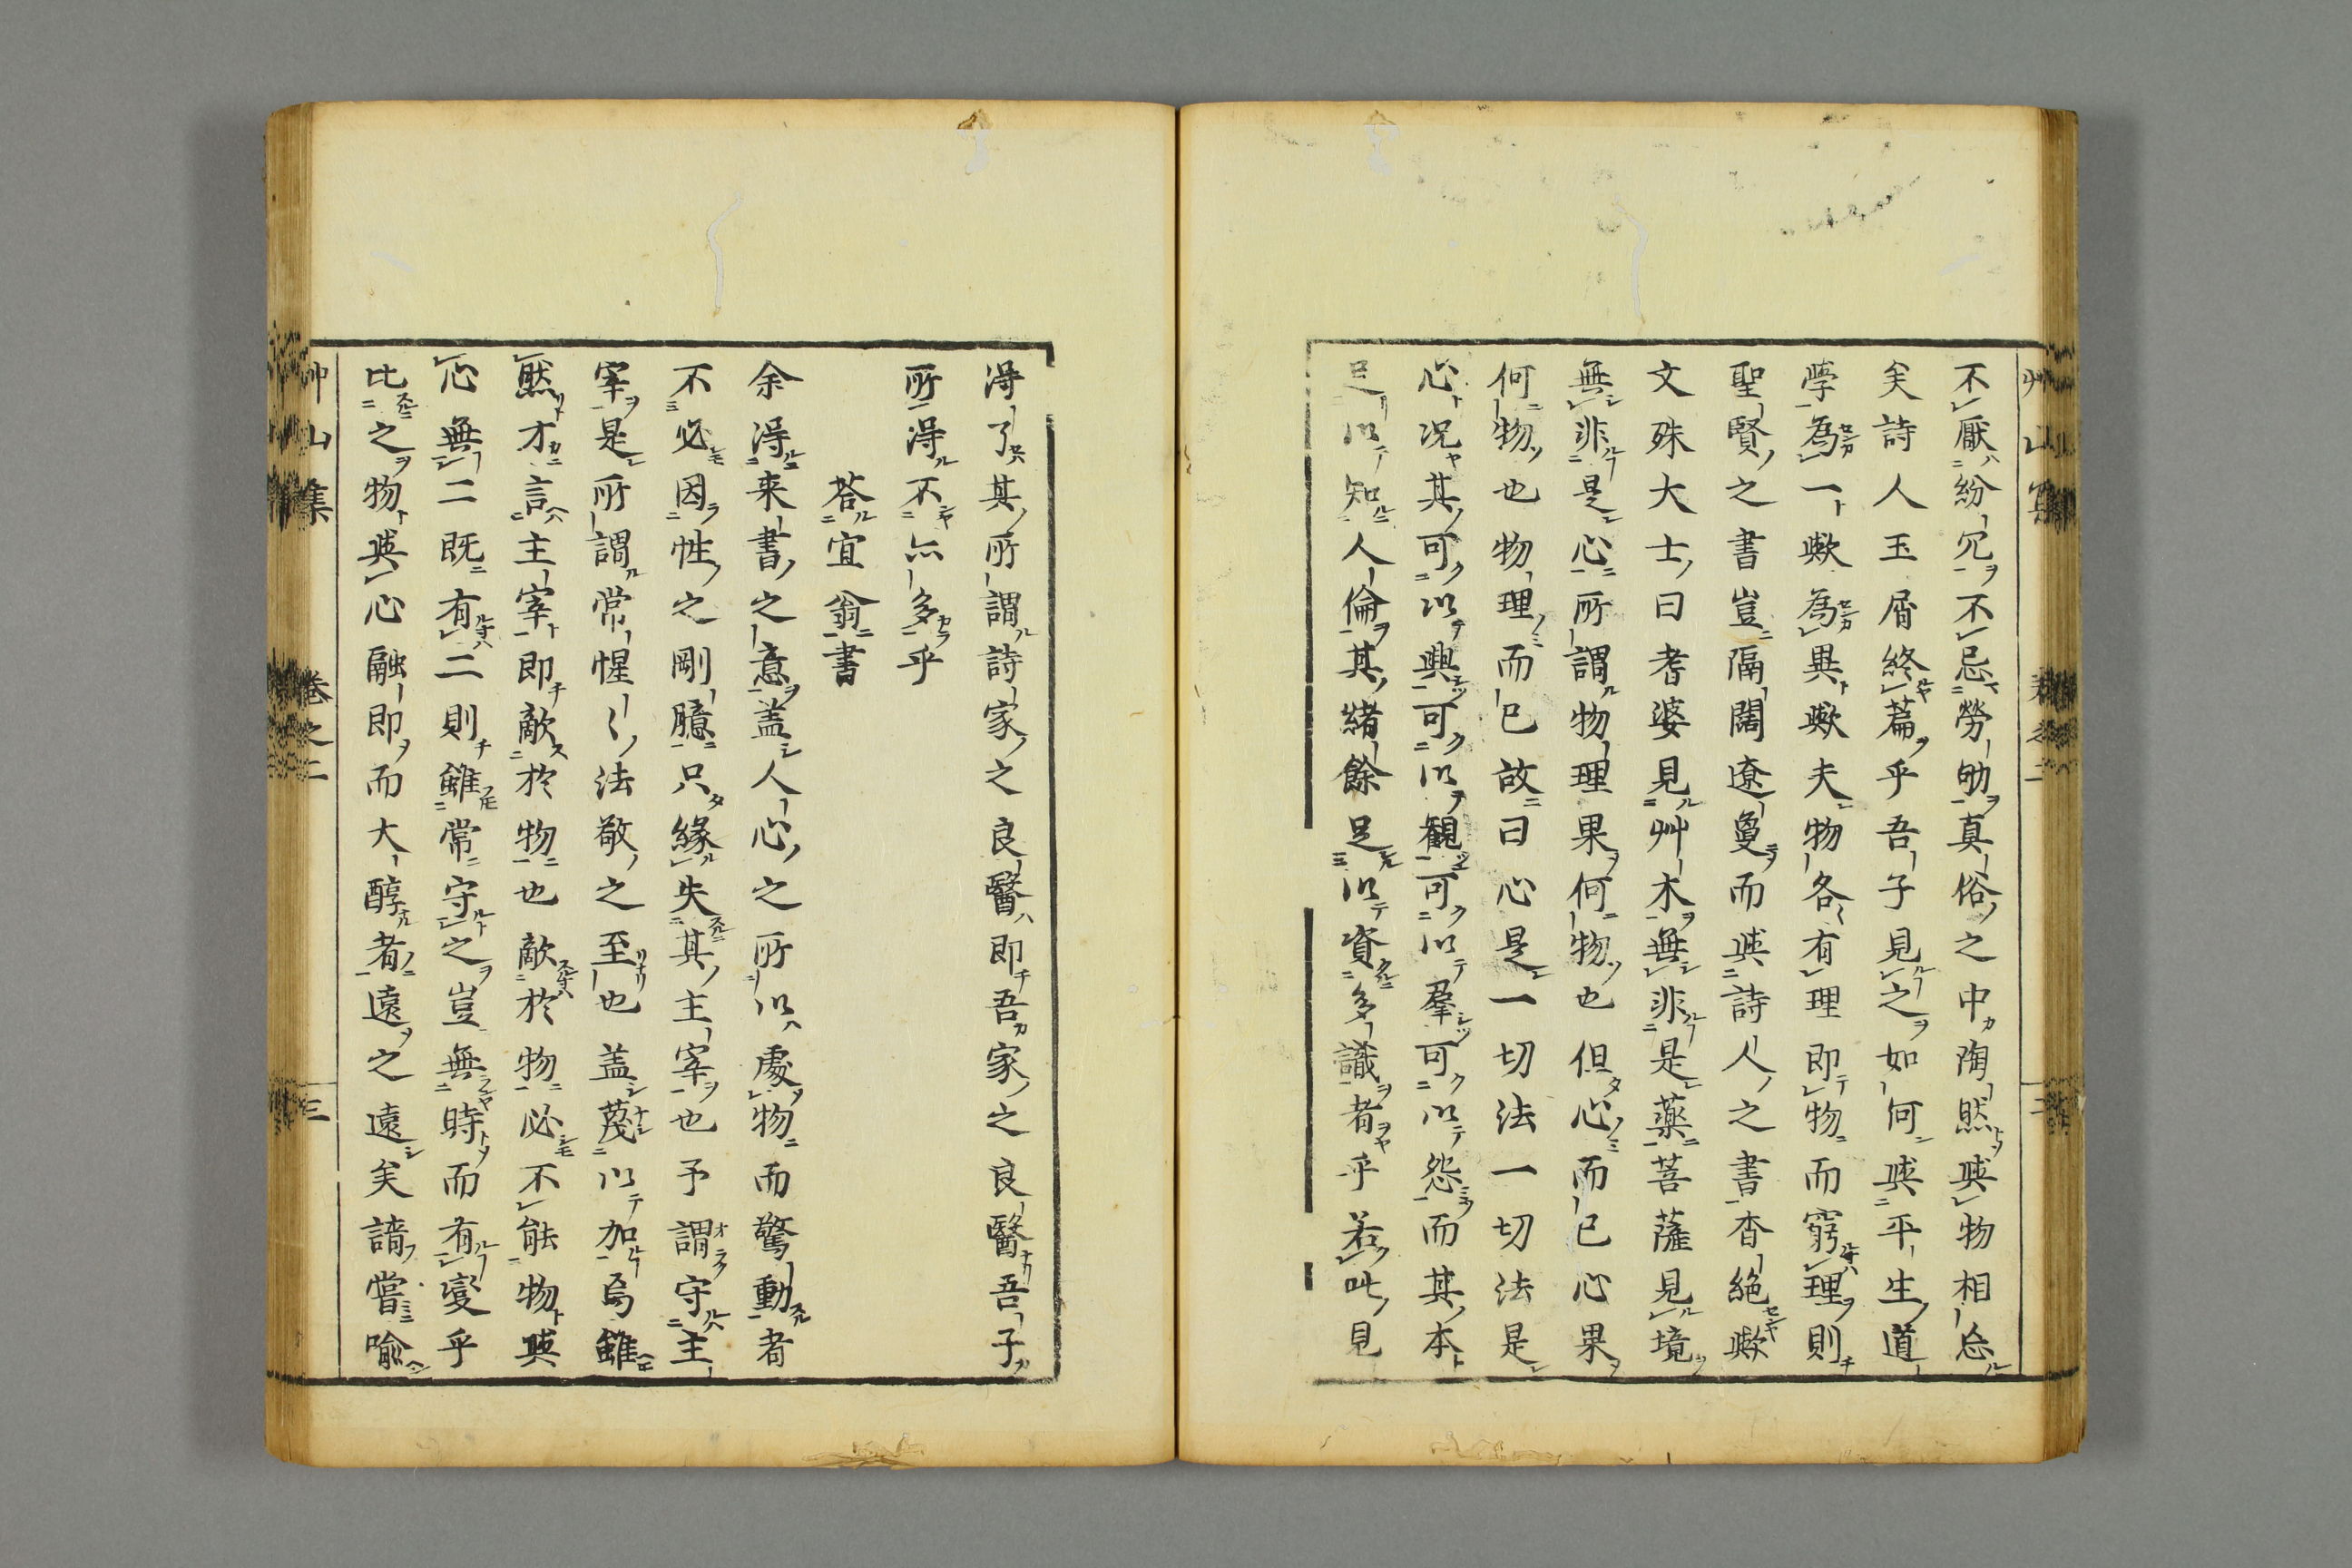 不厭紛冗不忌勞劬真俗之中陶然與物相忘
矣詩人玉屑終篇乎吾子見之如何與平生道
學為一歟為異歟夫物各有理即物而窮理則
聖賢之書豈隔闊遼敻而與詩人之書杳絕歟
文殊大士曰耆婆見艸木無非是藥菩薩見境
無非是心所謂物理果何物也但心而已心果
何物也物理而已故曰心是一切法一切法是
心况其可以興可以觀可以羣可以怨而其本
足以知人倫其緒餘足以資多識者乎若此見
得了其所謂詩家之良醫即吾家之良醫吾子
所得不亦多乎
荅宜翁書
余得来書之意盖人心之所以處物而驚動者
不必因性之剛臆只緣失其主宰也予謂守主
宰是所謂常惺〻法敬之至也盖蔑以加焉雖
然才言主宰即敵於物也敵於物必不能物與
心無二既有二則雖常守之豈無時而有變乎
比之物與心融即而大醇者遠之遠矣請嘗喩
艸山集　卷之二　三